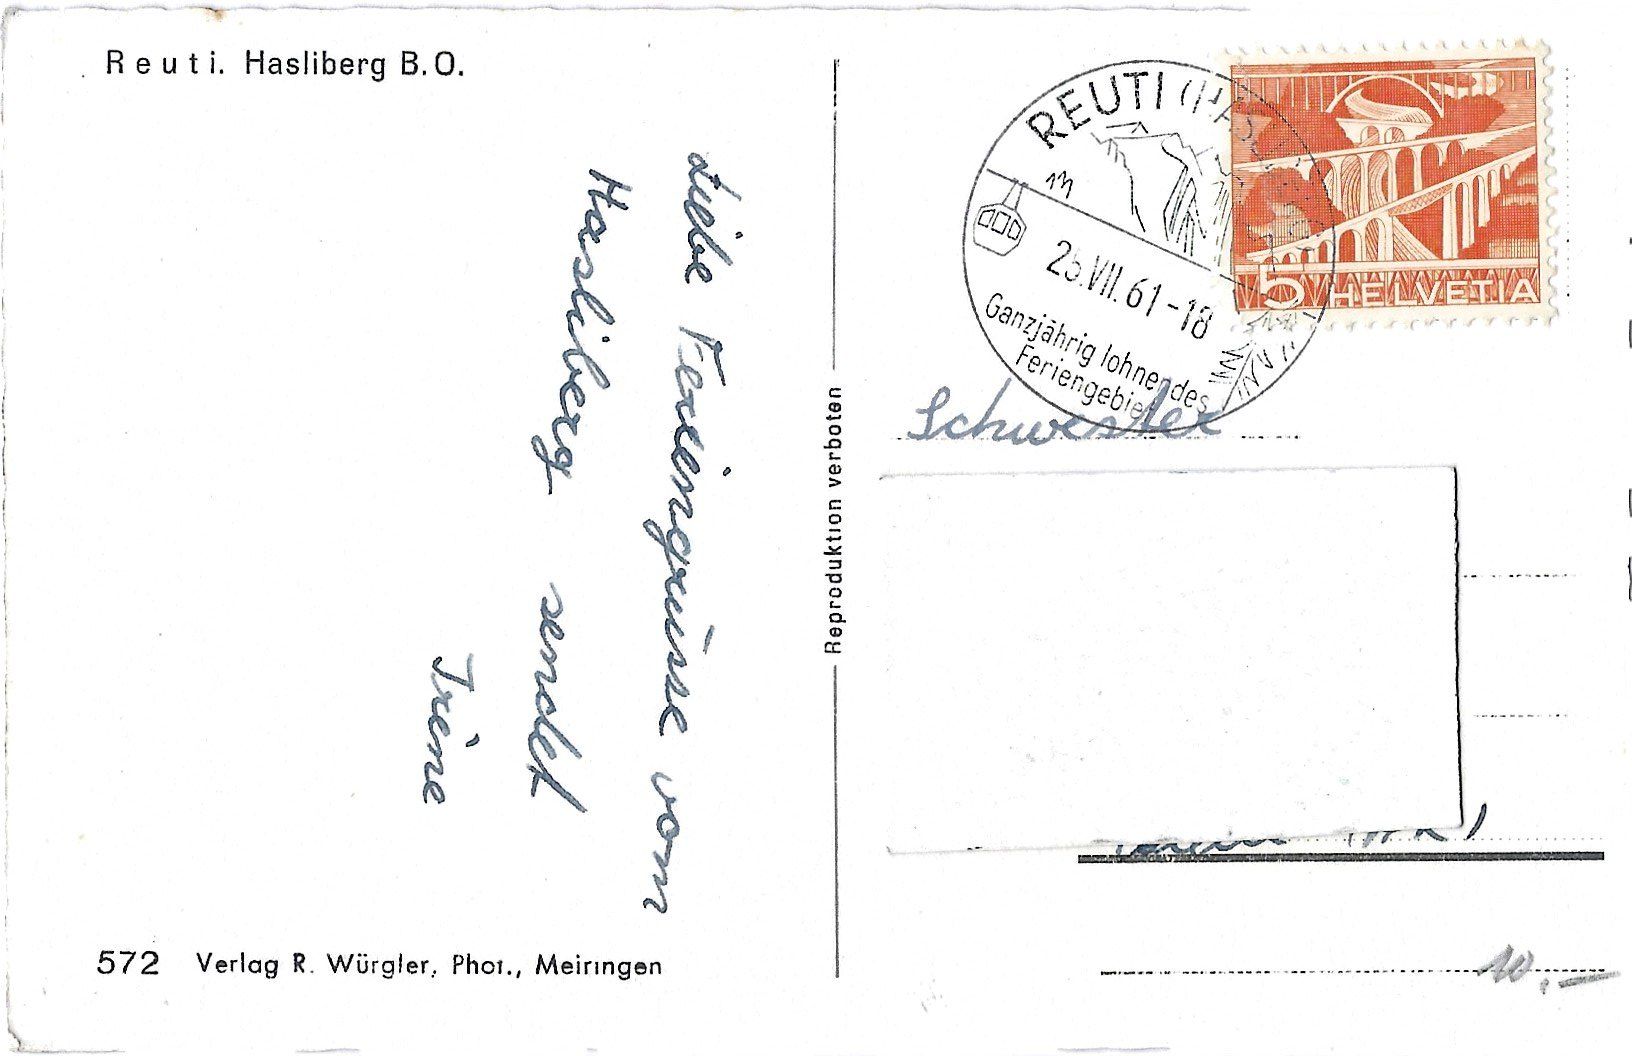 Reuti. Hasliberg B.O.
Liebe Feriengrüsse vom
Hasliberg sendet
Irène
572 Verlag R. Würgler, Phot., Meiringen
Reproduktion verboten
REUTI (HASLIBERG)
25.VII.61-18
Ganzjährig lohnendes
Feriengebiet
5 HELVETIA
Schwester
10.-